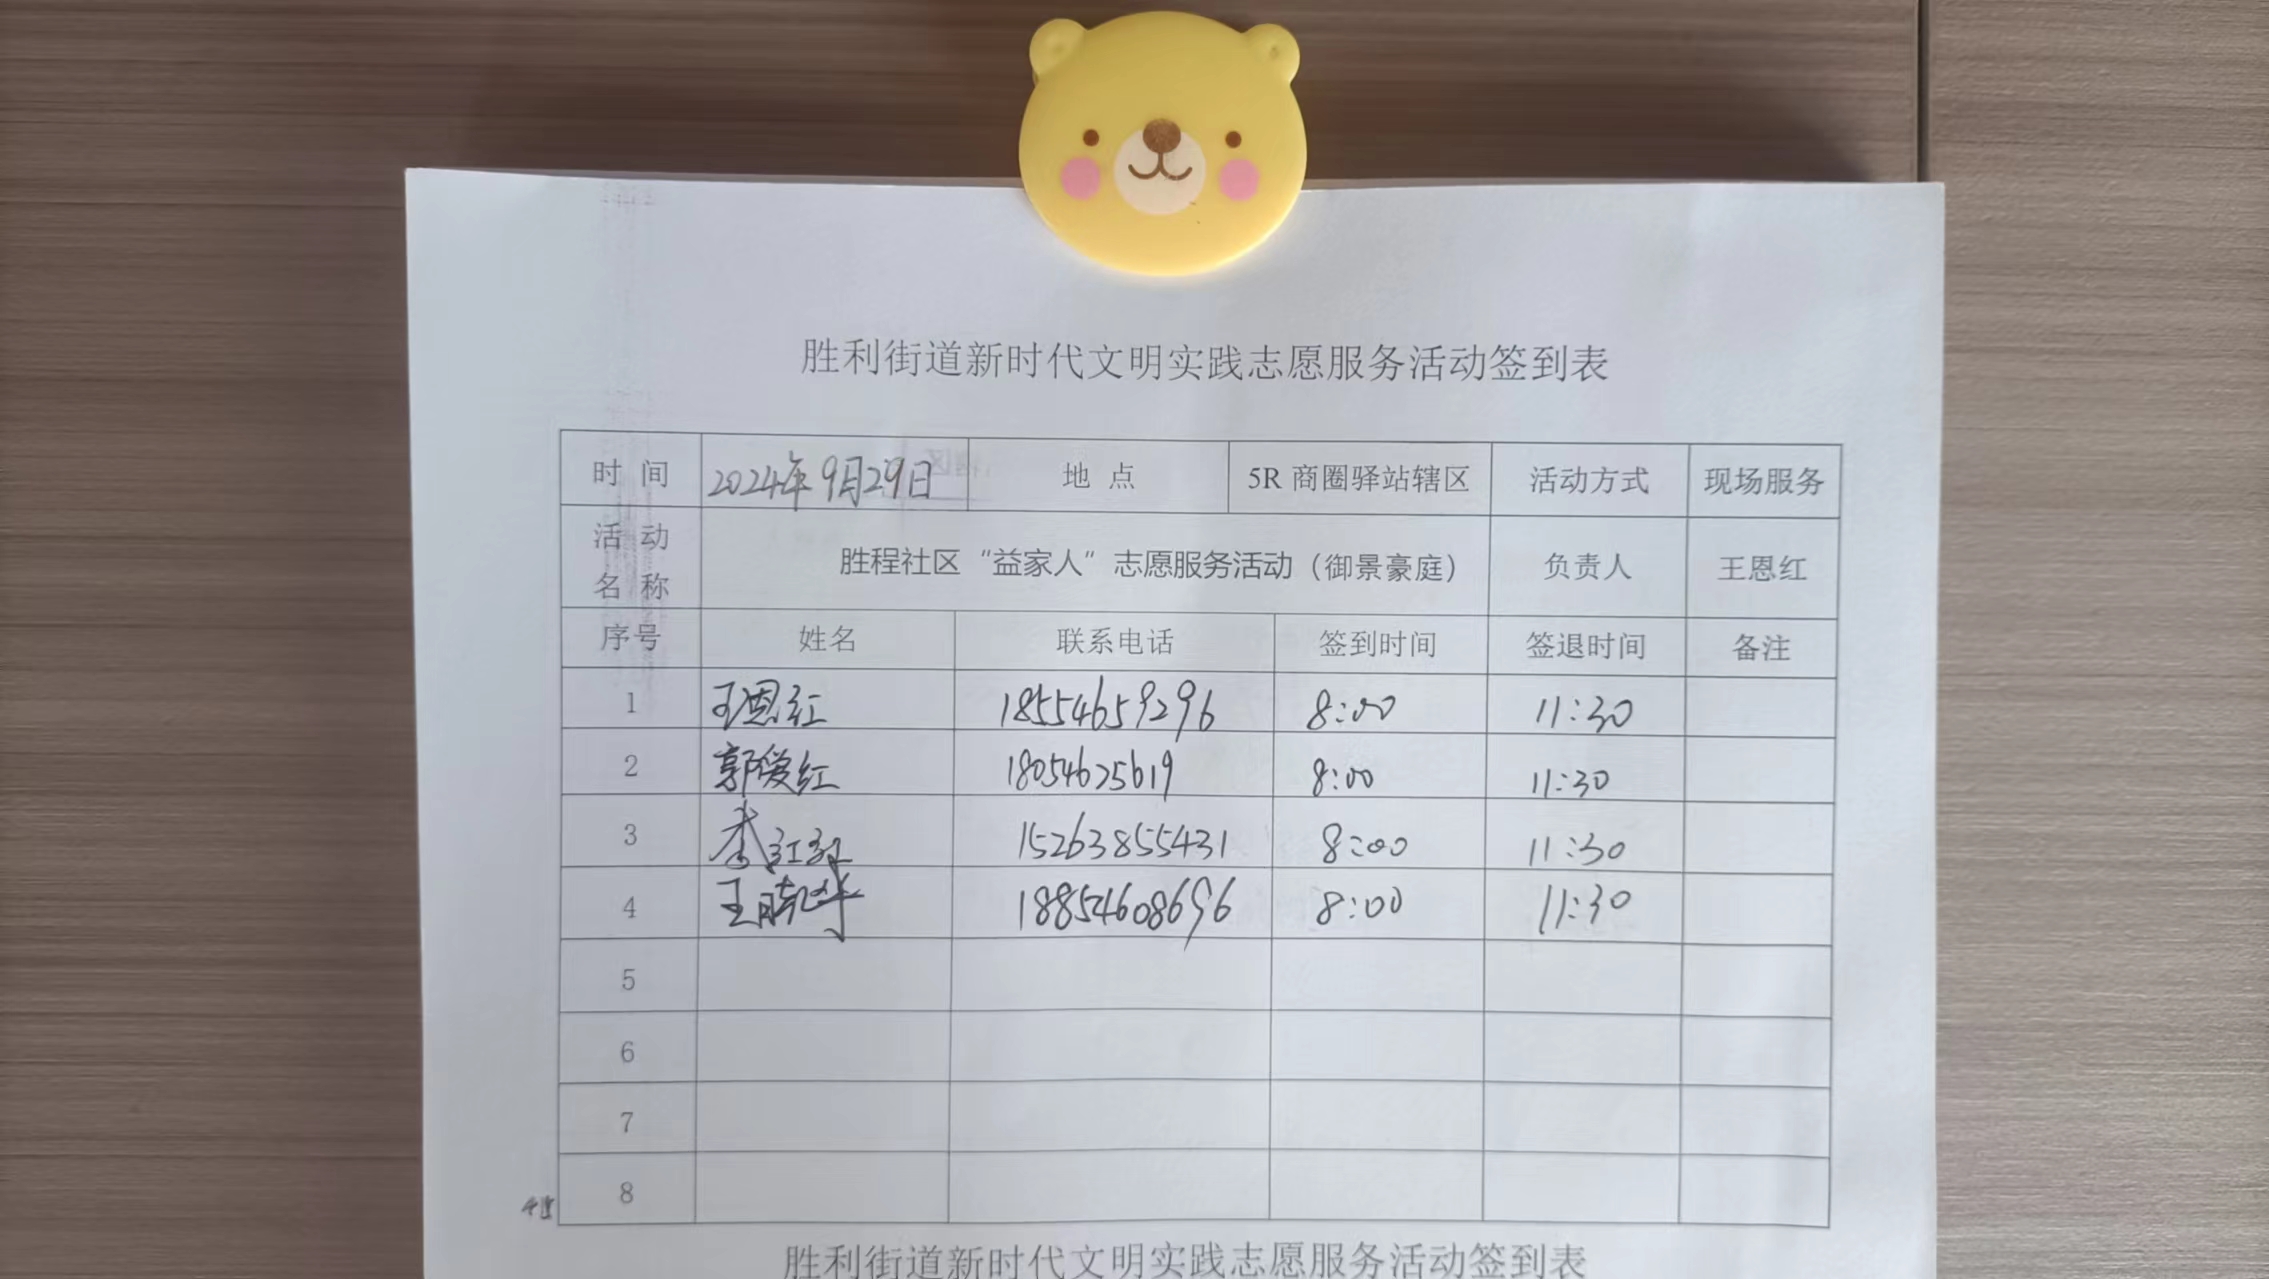 胜利街道新时代文明实践志愿服务活动签到表
时 间 2024年9月29日 地 点 5R 商圈驿站辖区 活动方式 现场服务
活 动 名 称 胜程社区“益家人”志愿服务活动（御景豪庭） 负责人 王恩红
序号 姓名 联系电话 签到时间 签退时间 备注
1 王恩红 18554659296 8:00 11:30
2 郭爱红 18054625619 8:00 11:30
3 李红红 15263855431 8:00 11:30
4 王晓华 18854608696 8:00 11:30
5
6
7
8
胜利街道新时代文明实践志愿服务活动签到表